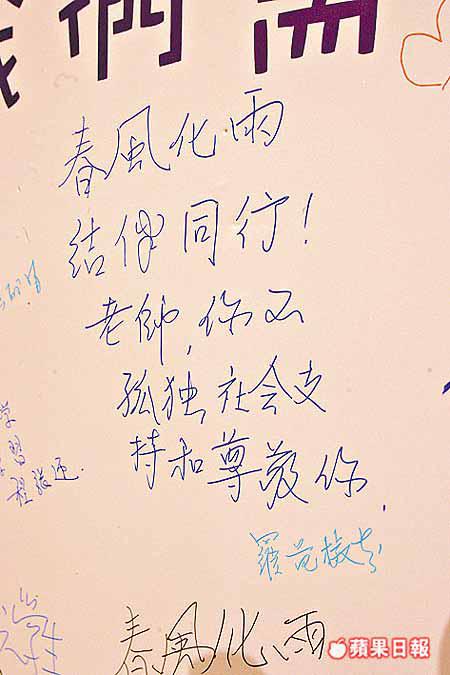 我們需
春風化雨
結伴同行!
老師,你不
孤独,社会支
持和尊敬你.
羅范椒芬
春風化雨
蘋果日報